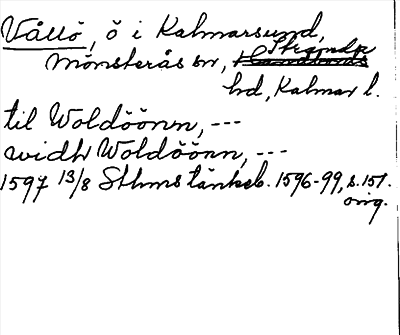 Vållö, ö i Kalmarsund,
Mönsterås sn, Stranda
hd, Kalmar l.
til Woldöönn, ---
widh Woldöönn, ---
1597 13/8 Sthms tänkeb. 1596-99, s. 151.
orig.